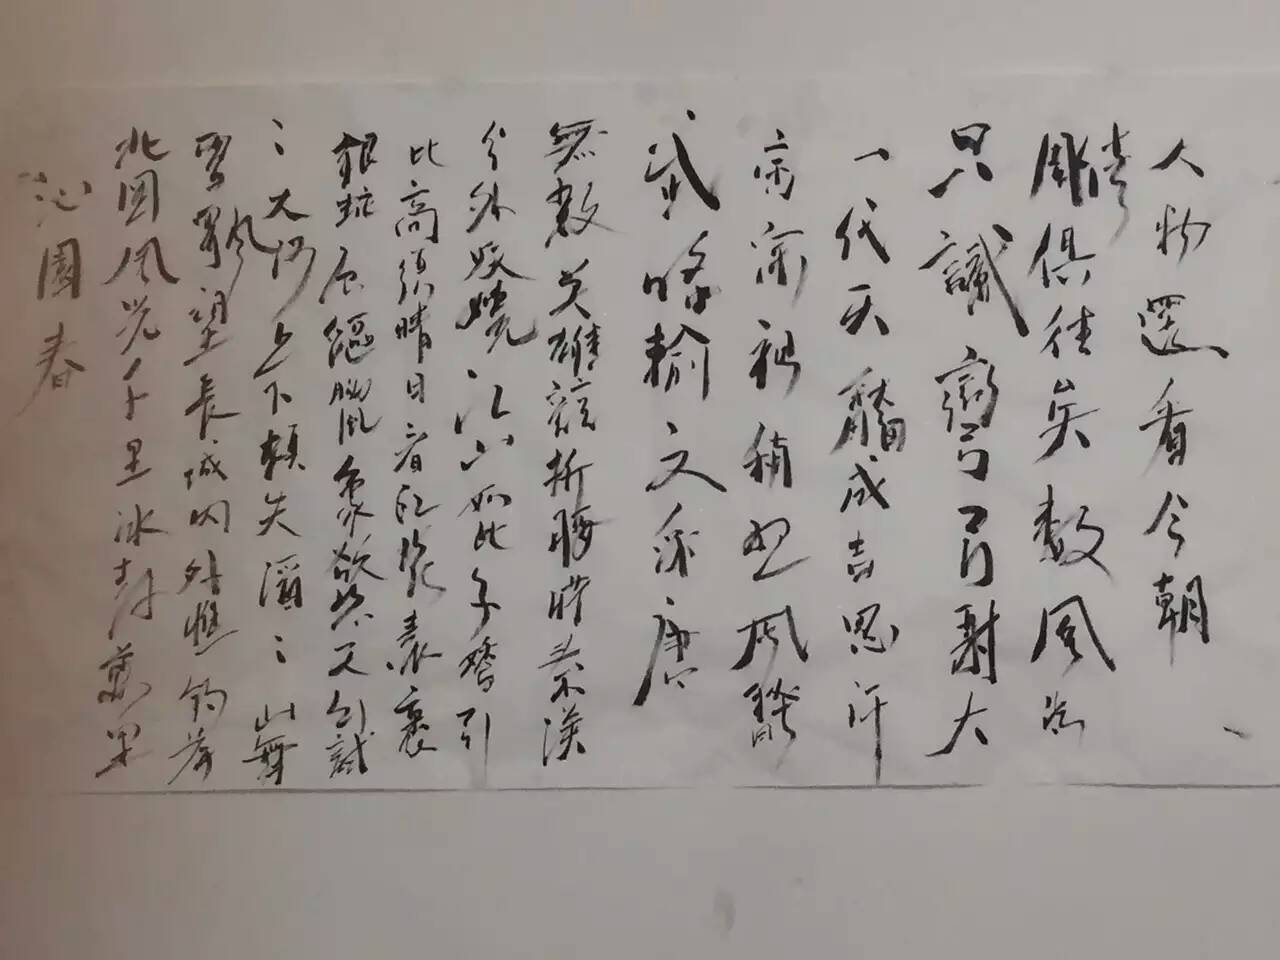 沁園春
北國風光千里冰封萬里
雪飄望長城内外惟餘莽
ミ大河上下頓失滔ミ山舞
銀蛇原馳蠟象欲與天公試
比高須晴日看紅裝素裹
分外妖嬈江山如此多嬌引
無數英雄競折腰惜秦皇漢
武略輸文采唐
宗宋祖稍遜風騷
一代天驕成吉思汗
只識彎弓射大
雕俱往矣數風流
人物還看今朝